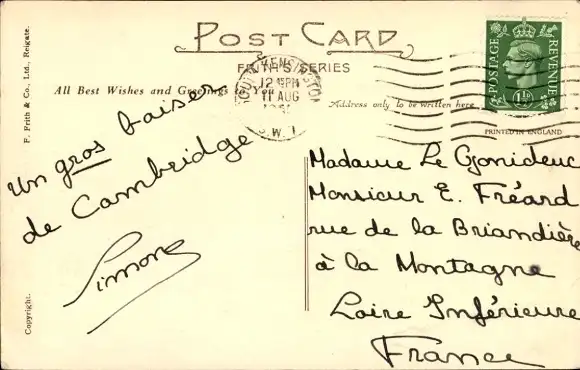 POST CARD
FRITH'S SERIES
All Best Wishes and Greetings to You
Address only to be written here
F. Frith & Co., Ltd., Reigate.
Copyright.
SOUTH KENSINGTON
12 PM
11 AUG
S.W.7
POSTAGE
REVENUE
1½D
PRINTED IN ENGLAND
Un gros baiser
de Cambridge
Simone
Madame Le Gonidec
Monsieur E. Fréard
rue de la Briandière
à la Montagne
Loire Inférieure
France